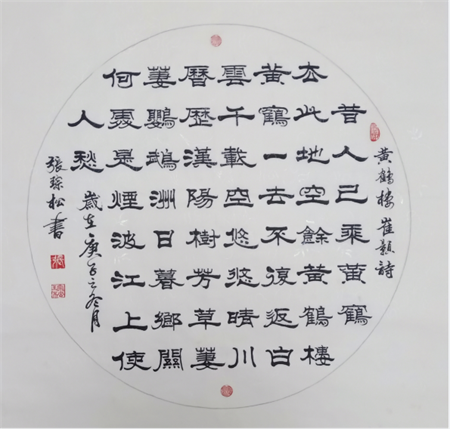 黃鶴樓 崔顥詩
昔人已乘黃鶴
去此地空餘黃鶴樓
黃鶴一去不復返白
雲千載空悠悠晴川
曆歷漢陽樹芳草萋
萋鸚鵡洲日暮鄉關
何處是煙波江上使
人愁
歲在庚子之冬月
張琮松書